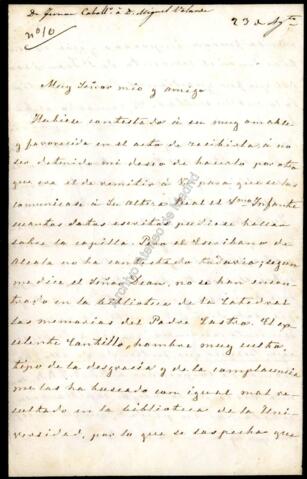 De Fernan Caballº á D. Miguel Velarde
nº 10
23 de Agto
Muy Señor mio y amigo
Hubiese contestado á su muy amable
y favorecida en el acto de recibirla, á no
ser detenido mi deseo de hacerlo por otro
que era el de remitir á V. para que se los
comunicase á Su Alteza Real el Smo Infante
cuantos datos escritos pudiese hallar
sobre la capilla. Pero el Escribano de
Alcala no ha contestado todavia; segun
me dice el Señor Dean, no se han encon-
trado en la biblioteca de la Catedral
las memorias del Padre Sastro. El ex-
celente Cantillo, hombre muy culto,
tipo de la desgracia y de la complacencia
me las ha buscado con igual mal re-
sultado en la biblioteca de la Uni-
versidad, por lo que se sospecha que
Archivo Museo de Madrid